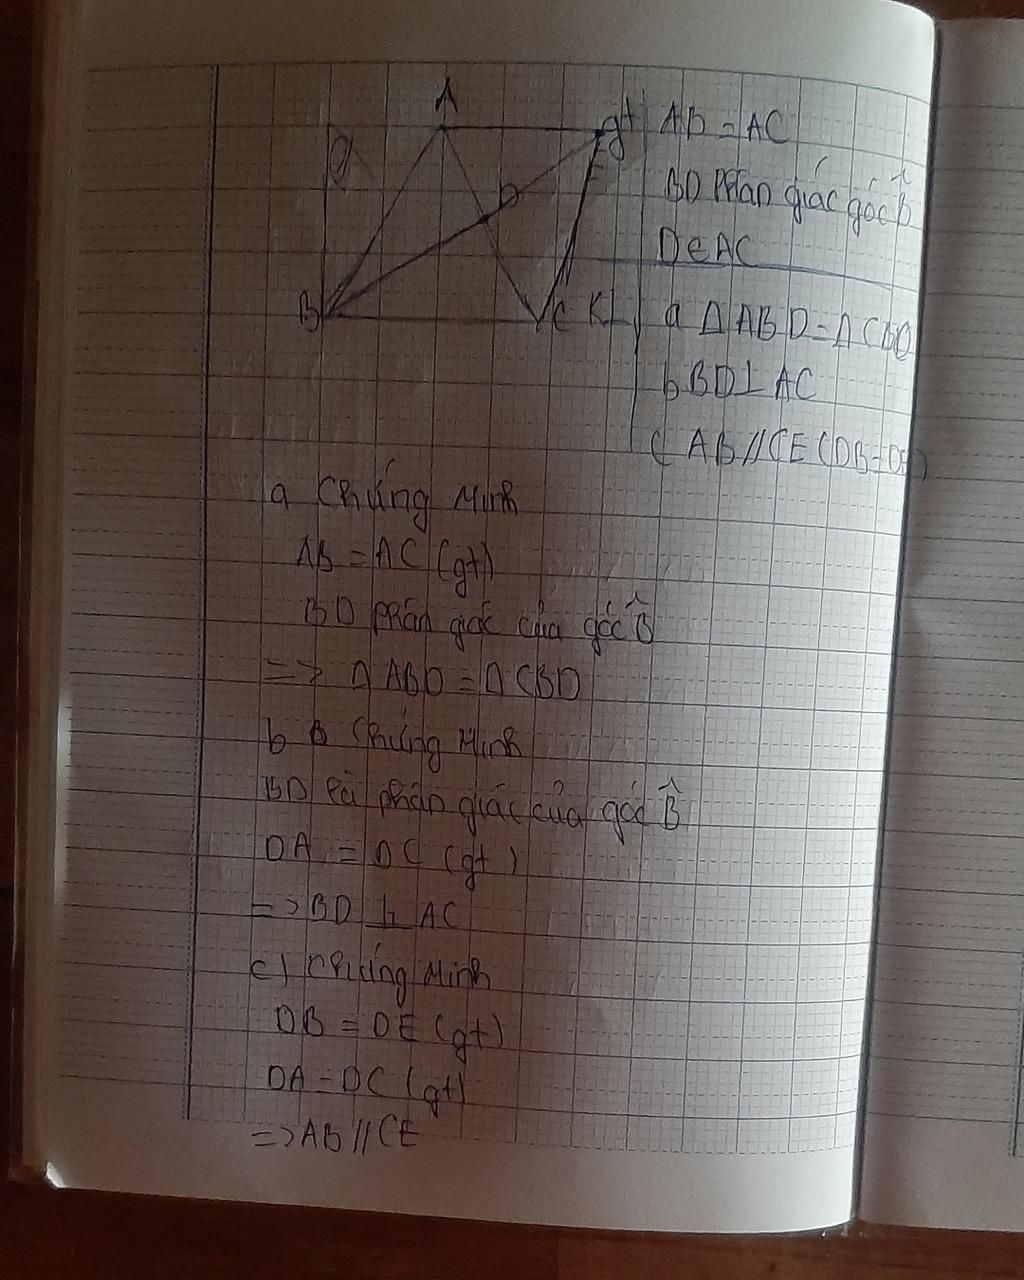 A
D
B
C
gt AB = AC
BD phân giác góc B̂
D∈AC
KL a ΔABD = ΔCBD
b BD⊥AC
c AB//CE (DB=DE)
a Chứng Minh
AB = AC (gt)
BD phân giác của góc B̂
=> ΔABD = ΔCBD
b Chứng Minh
BD là phân giác của góc B̂
DA = DC (gt)
=> BD ⊥ AC
c) Chứng Minh
DB = DE (gt)
DA = DC (gt)
=> AB // CE